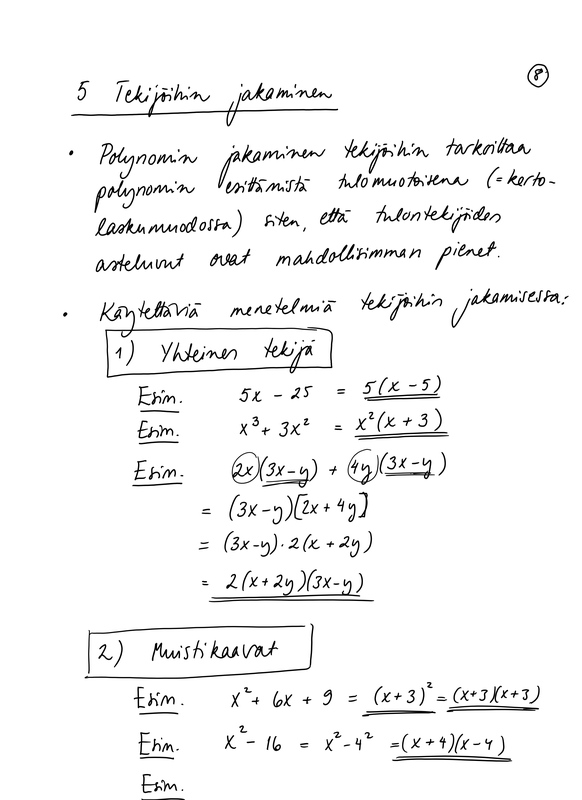 8
5 Tekijöihin jakaminen
• Polynomin jakaminen tekijöihin tarkoittaa
polynomin esittämistä tulomuotoisena (= kerto-
laskumuodossa) siten, että tulontekijöiden
asteluvut ovat mahdollisimman pienet.
• Käytettäviä menetelmiä tekijöihin jakamisessa:
1) Yhteinen tekijä
Esim. 5x - 25 = 5(x - 5)
Esim. x³ + 3x² = x²(x + 3)
Esim. 2x(3x-y) + 4y(3x-y)
= (3x-y)[2x+4y]
= (3x-y)·2(x+2y)
= 2(x+2y)(3x-y)
2) Muistikaavat
Esim. x² + 6x + 9 = (x+3)² = (x+3)(x+3)
Esim. x² - 16 = x² - 4² = (x+4)(x-4)
Esim.